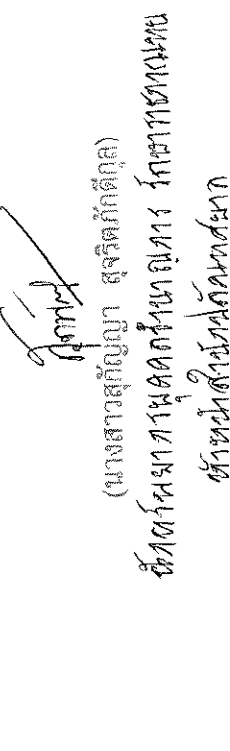 (นางสาวสุกัญญา สุจริตภักดีกุล)
นักทรัพยากรบุคคลชำนาญการ รักษาราชการแทน
หัวหน้าสำนักปลัดเทศบาล